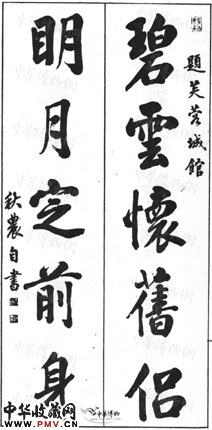 題芙蓉城館
碧雲懷舊侶
明月定前身
秋農自書
中华收藏网
www.PMV.CN